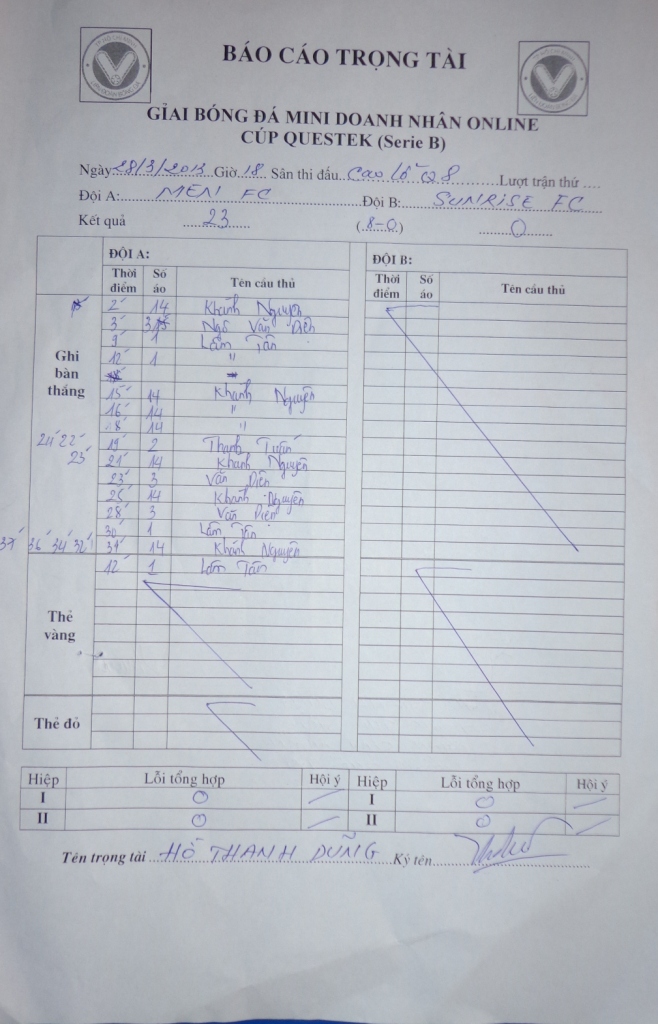 BÁO CÁO TRỌNG TÀI
GIẢI BÓNG ĐÁ MINI DOANH NHÂN ONLINE
CÚP QUESTEK (Serie B)
Ngày 28/3/2013 Giờ 18 Sân thi đấu Cao lỗ Q8 Lượt trận thứ ....
Đội A: MEN FC Đội B: SUNRISE FC
Kết quả 23 (8-0) 0
ĐỘI A: ĐỘI B:
Thời điểm Số áo Tên cầu thủ Thời điểm Số áo Tên cầu thủ
Ghi bàn thắng
2' 14 Khánh Nguyên
3' 3 Ngô Văn Diên
9' 1 Lâm Tấn
12' 1 "
15' 14 Khánh Nguyên
16' 14 "
18' 14 "
24' 22'
19' 2 Thanh Tuấn
23'
21' 14 Khánh Nguyên
23' 3 Văn Diên
25' 14 Khánh Nguyên
28' 3 Văn Diên
30' 1 Lâm Tấn
37' 36' 34' 32'
31' 14 Khánh Nguyên
12' 1 Lâm Tấn
Thẻ vàng
Thẻ đỏ
Hiệp Lỗi tổng hợp Hội ý Hiệp Lỗi tổng hợp Hội ý
I 0 I 0
II 0 II 0
Tên trọng tài HỒ THANH DŨNG Ký tên